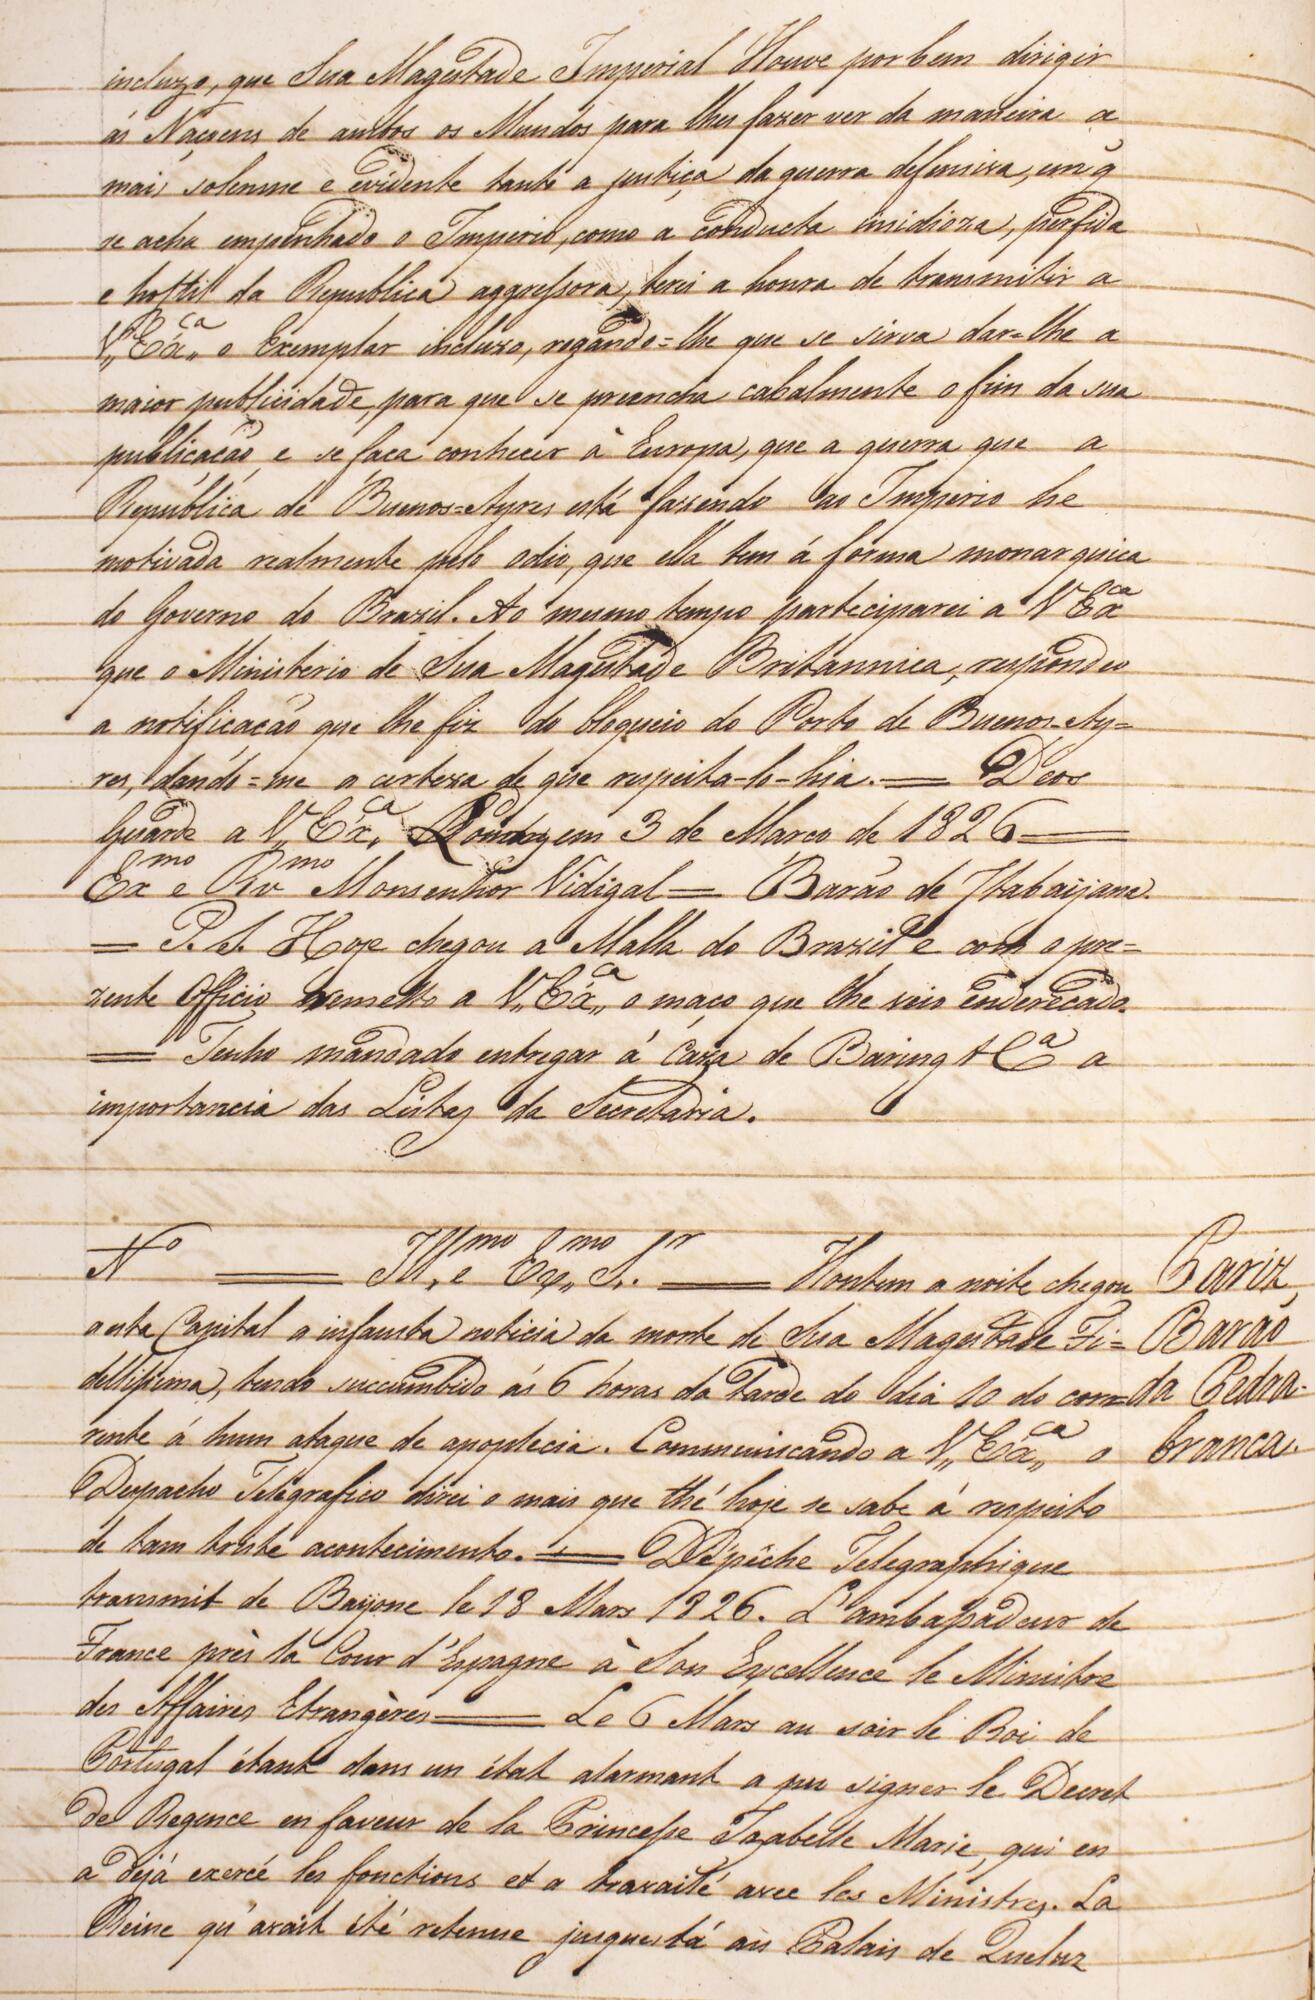 incluzo, que Sua Magestade Imperial Houve por bem dirigir
ás Naçoens de ambos os Mundos para lhes fazer ver da maneira a
mais solemne e evidente tanto a justiça da guerra defensiva, em q̃
se acha empenhado o Imperio, como a conducta insidioza, perfida
e hostil da Republica aggressora, terei a honra de transmitir a
V,, Ex.ca,, o Exemplar incluzo, rogando=lhe que se sirva dar=lhe a
maior publicidade, para que se preencha cabalmente o fim da sua
publicação, e se faca conhecer à Europa, que a guerra que a
Républica de Buenos=Ayres está fazendo ao Imperio he
motivada realmente pelo odio, que ella tem á forma monarquica
do Governo do Brazil. Ao mesmo tempo participarei a V Exca
que o Ministerio de Sua Magestade Britannica, respondeo
a notificacão que lhe fiz do bloqueio do Porto de Buenos-Ay=
res, dando=me a certeza de que respeita-lo-hia. = Deos
Guarde a V,, Ex.ca Londres em 3 de Março de 1826 =
Exmo e Rvmo Monsenhor Vidigal = Barão de Itabaijana.
= P. S. Hoje chegou a Malla do Brazil e com o pre=
zente Officio remetto a V,, Exca,, o maço que lhe veio enderecado.
= Tenho mandado entregar á Caza de Baring & Ca a
importancia das Listas da Secretaria.
No = Ill.mo e Ex.mo S.r = Hontem a noite chegou
a esta Capital a infausta noticia da morte de Sua Magestade Fi=
dellissima, tendo succumbido ás 6 horas da Tarde do dia 10 do cor=
rente á hum ataque de apoplecia. Communicando a V,, Exca,, o
Despacho Telegrafico direi o mais que thé hoje se sabe á respeito
de tam triste acontecimento. = Dépêche Telegraphique
transmit de Bayone le 18 Mars 1826. L'ambassadeur de
France près la Cour d'Espagne à Son Excellence le Ministre
des Affaires Etrangères = Le 6 Mars au soir le Roi de
Portugal étant dans un état alarmant a pu signer le Decret
de Regence en faveur de la Princesse Isabelle Marie, qui en
a déjá exercé les fonctions et a travaillé avec les Ministres. La
Reine qu'avait été retenue jusques lá au Palais de Queluz
Pariz,
Barão
da Pedra-
branca.